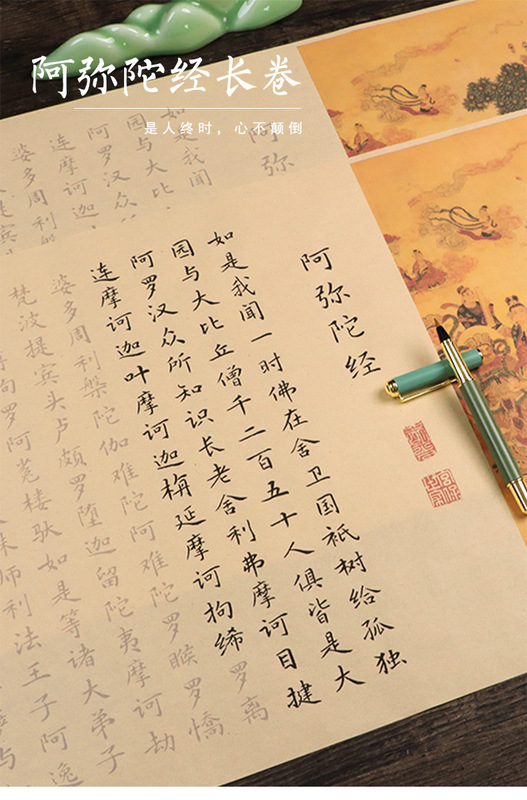 阿弥陀经长卷
是人终时，心不颠倒
阿弥
如是我闻
园与大比
阿罗汉众
连摩诃迦
婆多周利
提宾
阿弥陀经
如是我闻一时佛在舍卫国衹树给孤独
园与大比丘僧千二百五十人俱皆是大
阿罗汉众所知识长老舍利弗摩诃目揵
连摩诃迦叶摩诃迦栴延摩诃拘絺罗离
婆多周利槃陀伽难陀阿难陀罗睺罗憍
梵波提宾头卢颇罗堕迦留陀夷摩诃劫
拘罗阿㝹楼驮如是等诸大弟子
师利法王子阿逸
与